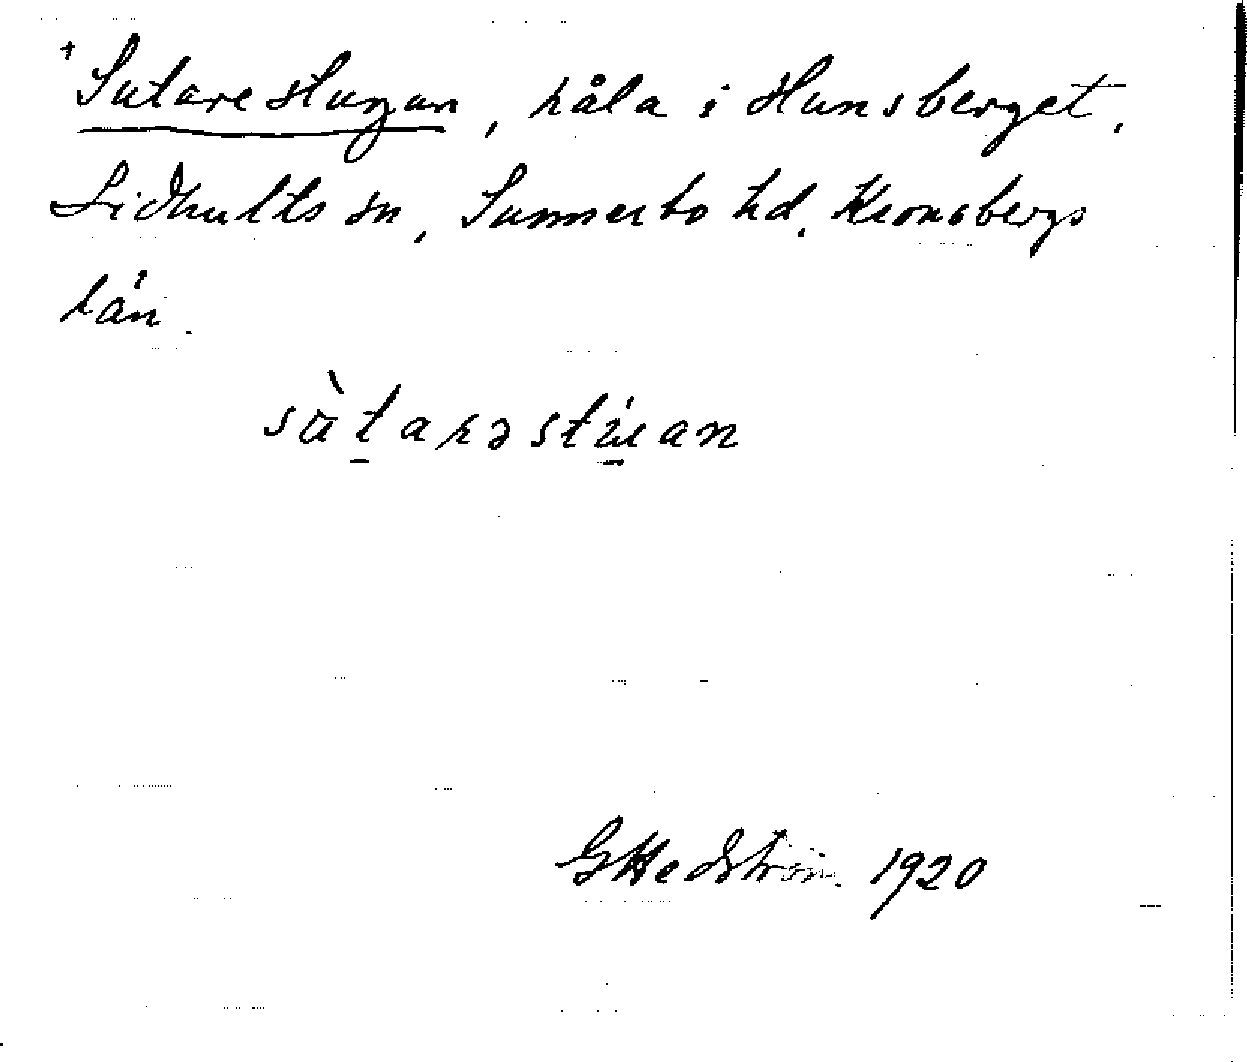 + Sutarestugan, håla i Hunsberget,
Lidhults sn, Sunnerbo hd, Kronobergs
län.
sùtarəstúan
GHedström. 1920